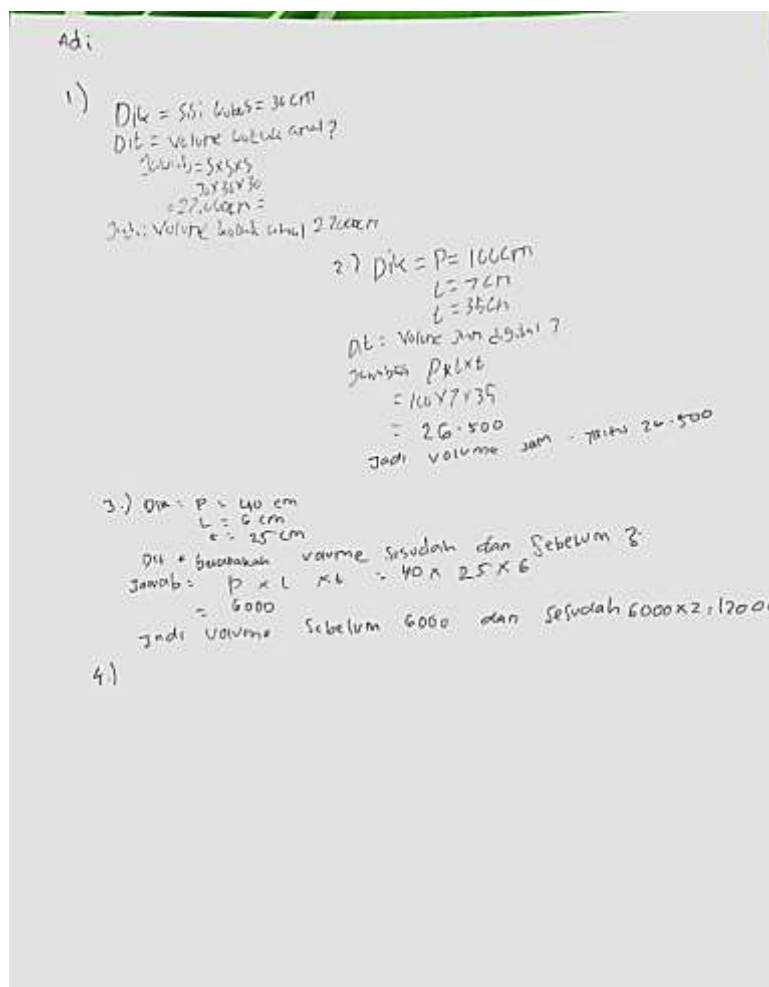 Adi
1) Dik = Sisi kubus = 30 cm
Dit = volume kotak amal?
Jawab = S x S x S
30 x 30 x 30
= 27.000cm =
Jadi: Volume kotak amal 27000cm
2.) Dik = P = 100cm
L = 7cm
t = 35cm
Dit : Volume Jam digital ?
Jawaban P x L x t
= 100 x 7 x 35
= 26.500
Jadi volume Jam 26.500
3.) Dik = P = 40 cm
L = 6 cm
t = 25 cm
Dit = berapakah volume sesudah dan Sebelum ?
Jawab = P x L x t = 40 x 25 x 6
= 6000
Jadi volume Sebelum 6000 dan sesudah 6000 x 2 = 12000
4.)